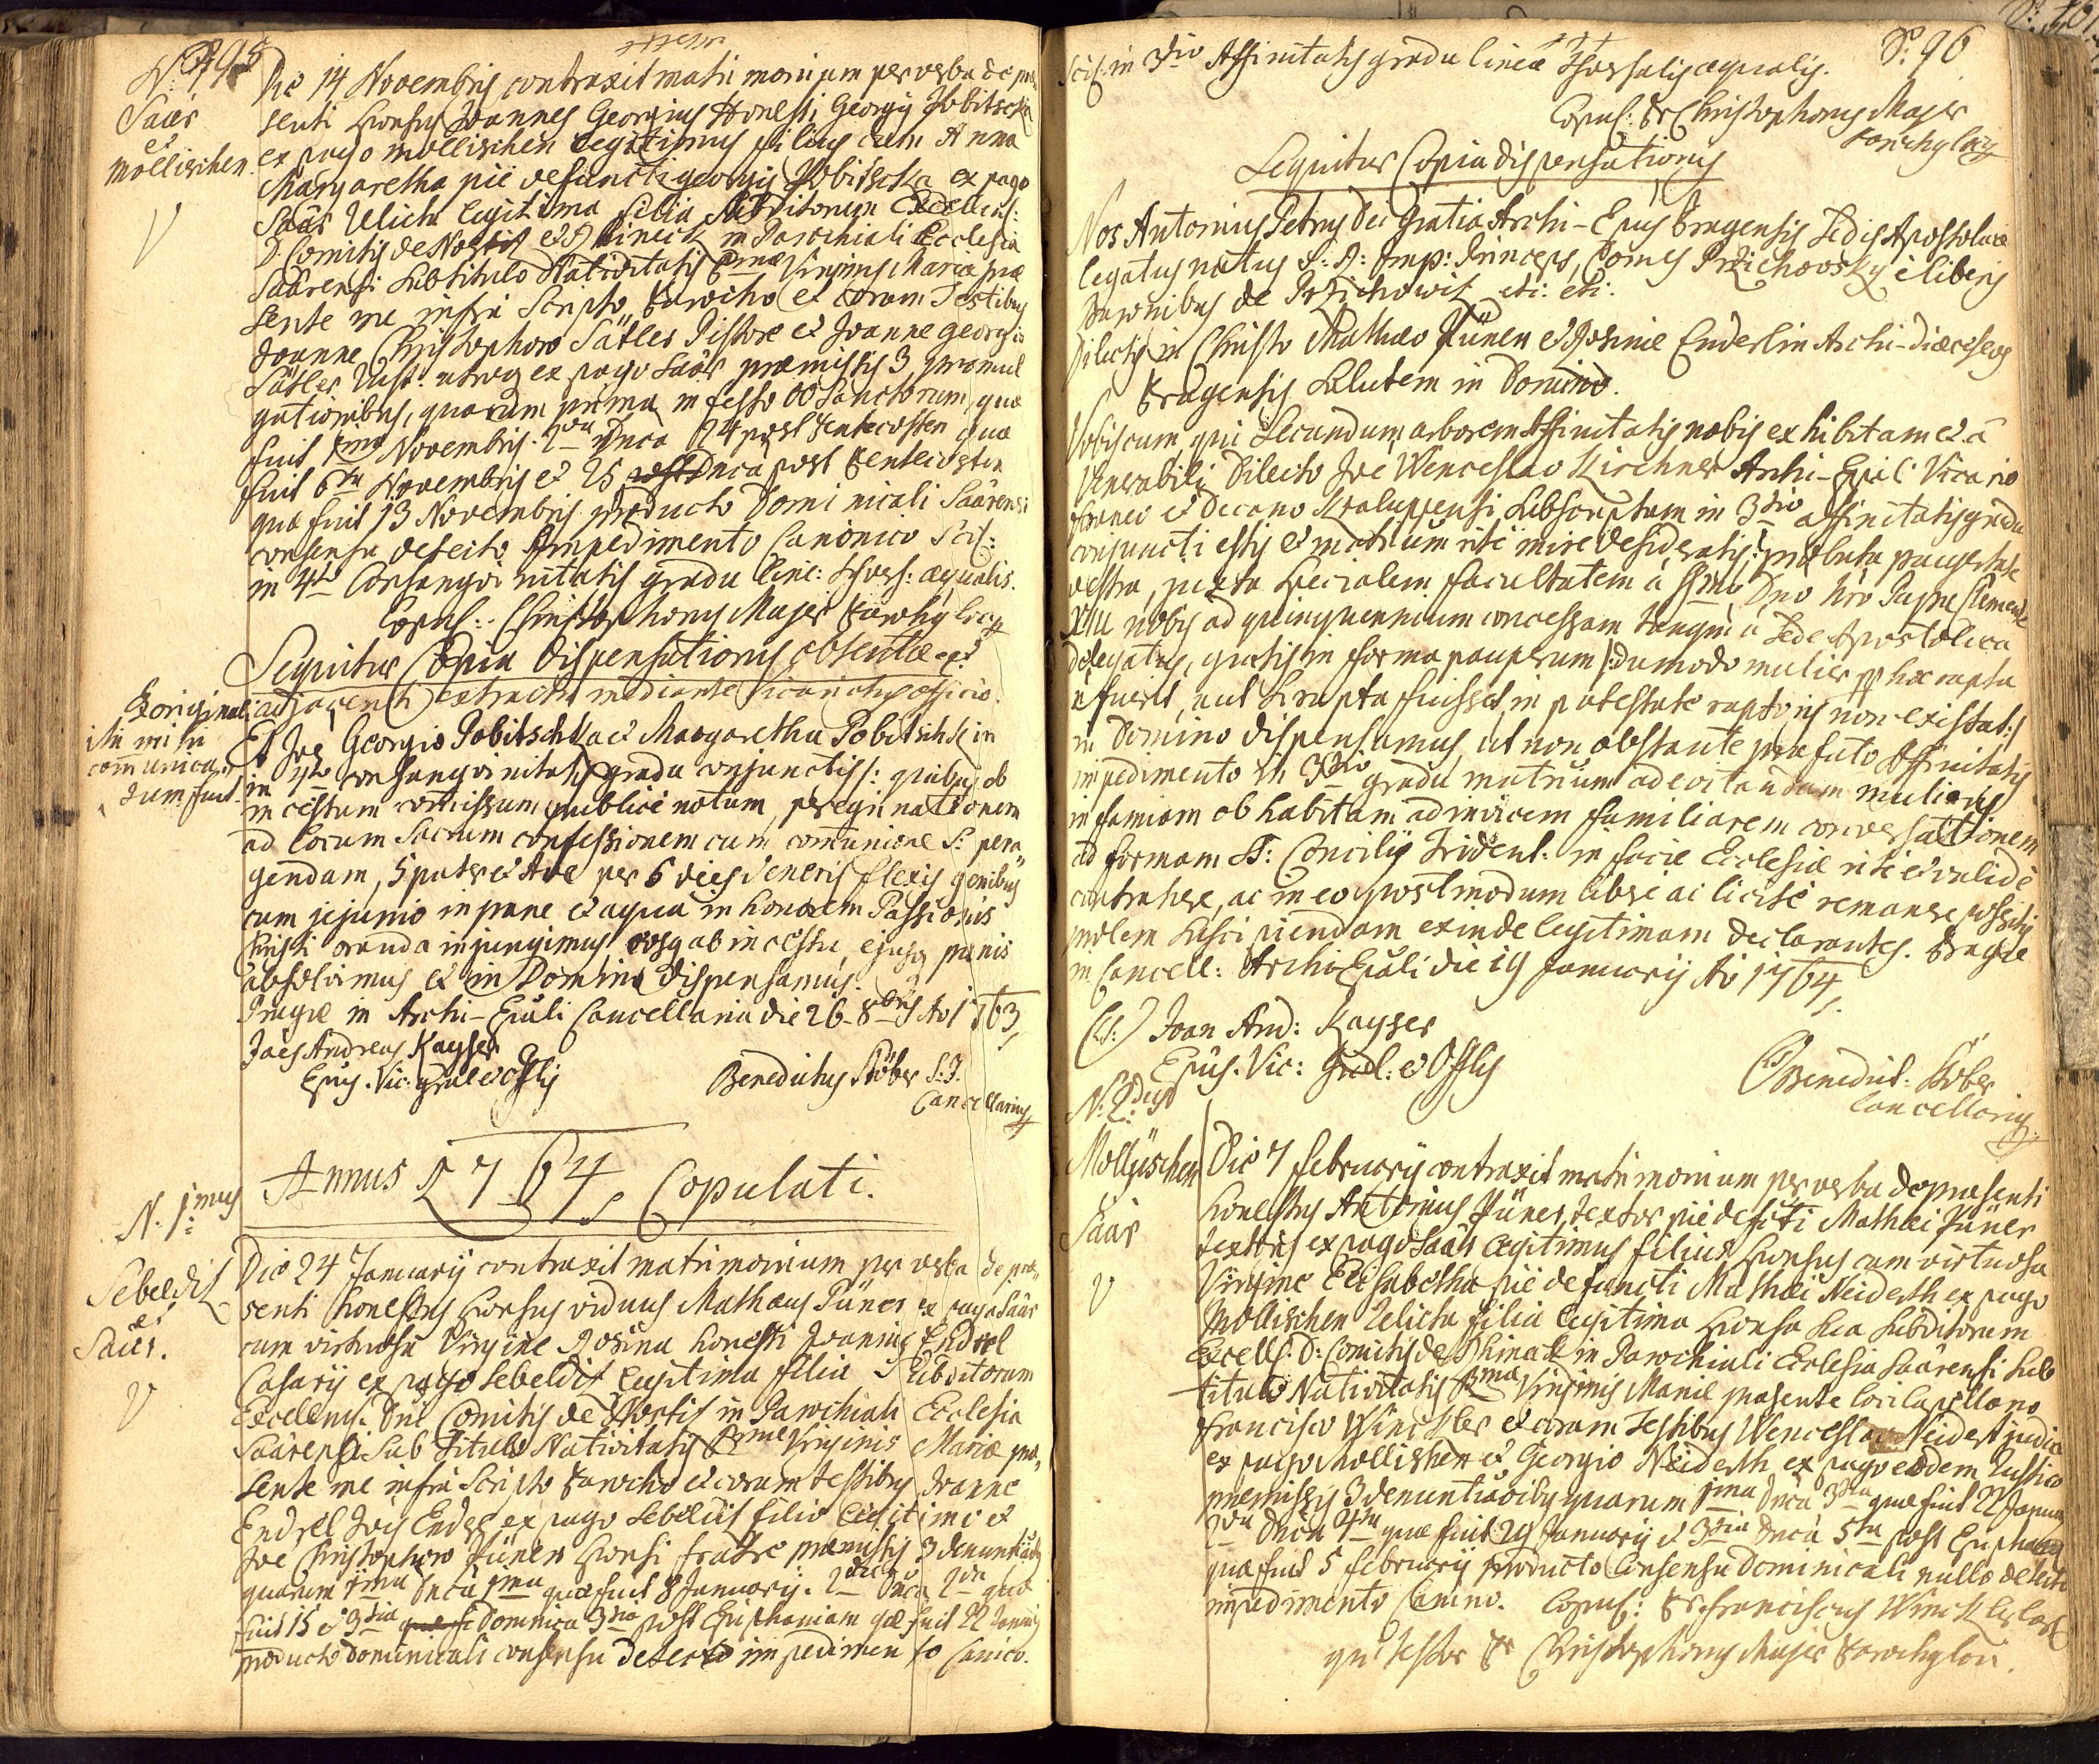 Die 14 Novembris contraxit matrimonium per verba de præ
Saar
senti Sponsus Joannes Georgius Honesti Georgij Pobitschka
et
Mollischen
ex pago Mollischen legitimus filius cum Anna
Margaretha pie defuncti Georgij Pobitschka ex pago
Saar relicta legitima filia subditorum Excellens:
D. Comitis de Nostitz et Rineck in Parochiali Ecclesia
Saarensi sub titulo Nativitatis Bmæ Virginis Mariæ præ
sente me infra scripto Parocho et coram Testibus
Joanne Christophoro Sätler Pistore et Joanne Georgio
Sätler Rust: utroq ex pago Saar præmissis 3 promul
gationibus, quarum prima in festo OO Sanctorum, quæ
fuit 1ma Novembris. 2da Dnca 24 post Pentecosten quæ
fuit 6ta Novembris et 25 Dnca post Pentecosten
quæ fuit 13 Novembris producto Dominicali Saarensi
consensu detecto Impedimento Canonico Scil:
in 4to Consangvinitatis gradu line: æqualis.
Copul: Christophorus Majer Parochus loci
Sequitur Copia Dispensationis obtentæ et
Ex originali adjacenti extracta mediante Vicariatus officio.
ita mihi
communica
tum fuit
Joe Georgio Pobitschka et Margaretha Pobitschk in
in 4to consangvinitatis gradu conjunctis: quibus ob
incestum comissum publice notum, peregrinationem
ad locum Sacrum confessionem cum communione S: pera
gendam, 5 pater et Ave per 6 dies Veneris flexis genibus
cum jejunio in pane et aqua in honorem Passionis
Christi oranda injungimus eosq ab incestu, ejusq pænis
absolvimus, et in Domino dispensamus.
Pragæ in Archi-Epali Cancellaria die 26. 8bris Ao 1763
Joes Andreas Kayser
Epus. Vic: gnral et Offlis
Benedictus Stöber S. J.
Cancellarius
Annus 1764, Copulati.
N. 1mus
Sebeldis
et
Saar.
Die 24 January contraxit matrimonium per verba de præ
senti honestus Sponsus viduus Mathæus Püner ex pago Saar
cum virtuosa Virgine Rosina honesti Joannis Endrel
Casarij ex pago Sebeldis legitima filia Subditorum
Excellens. Dni Comitis de Nostis in Parochiali Ecclesia
Saarensi sub titulo Nativitatis Bmæ Virginis Mariæ præ
sente me infra Scripto Parocho et coram testibus Joanne
Endrel Jois Endrel ex pago Sebeldis filio legitimo et
Joe Christophoro Püner Sponsi fratre præmissis 3 denuntiaoibus
quarum 1ma Dnca 1ma quæ fuit 8 January. 2da Dnca 2da quæ
fuit 15 et 3tia Dominica 3tia post Epiphaniam quæ fuit 22 January
producto dominicali consensu detecto impedimento Canico.
No. 96
Scil: in 3tio Affinitatis gradu lineæ æqualis.
Copul: Pr Christophorus Majer
Parochus loci
Sequitur Copia dispensationis
Nos Antonius Petrus Dei Gratia Archi-Epus Pragensis Sedis Apostolicæ
legatus natus S: R: Imp: Princeps, Comes Przichovsky è liberis
Baronibus de Przichowitz etc: etc:
Dilectis in Christo Mathæo Püner et Rosinæ Enderlin Archi-Diæceseos
Pragensis Salutem in Domino.
Vobiscum, qui secundum arborem Affinitatis nobis exhibitam et à
Venerabili Dilecto Joe Wenceslao Kirchner Archi-Epali Vicario
foraneo et Decano Kraluppensi subscriptam in 3tio affinitatis gradu
conjuncti estis et matrium rite inire desideratis: probata paupertate
vestra, juxta specialem facultatem à Ssmo Dno Nro Papa Clemente
XIII nobis ad quinquennium concessam tanqm à Sede Apostolica
delegatus, gratis in forma pauperum /:dumodo mulier pp hoc rapta
n fuerit, aut si rapta fuisset, in potestate raptoris non existat:/
in Domino dispensamus, ut non obstante præfato Affinitatis
impedimento in 3tio gradu matrium ad evitandam mulieris
infamiam ob habitam ad invicem familiarem conversationem
ad formam S: Concilij Trident: in facie Ecclesiæ rite et valide
contrahere, ac in eo postmodum libere ac licite remanere possitis
prolem suscipiendam exinde legitimam declarantes. Pragæ
in Cancell: Archi Epali die 19 January Ao 1764
(L:) Joan And: Kayser
Epus. Vic: Gnral: et Offlis
Benedict: Stöber
Cancellarius
N. 2dus
Mollischen
Saar
Die 7 february contraxit matrimonium per verba de præsenti
honestus Antonius Püner, textor pie defuncti Mathæi Püner
textoris ex pago Saar legitimus filius Sponsus cum virtuosa
Virgine Elisabetha pie defuncti Mathæi Neiderth ex pago
Mollischen relicta filia legitima Sponsa sua Subditorum
Excell: D: Comitis de Rhineck in Parochiali Ecclesia Saarensi sub
titulo Nativitatis Bmæ Virginis Mariæ præsente loci Capellano
Francisco Winckler et coram Testibus Wenceslao Neidert judice
ex pago Mollischen et Georgio Neiderth ex pago eodem Rustico
præmissis 3 denuntiaoibus quarum 1ma Dnca 3tia quæ fuit 22 January
2da Dnca 4ta quæ fuit 29 January et 3tia Dnca 5ta post Epiphaniam
quæ fuit 5 february producto Consensu Dominicali nullo detecto
impedimento Canino. Copul: Pr. Franciscus Winckler
qui testor Pr Christophorus Majer Parochus loci.